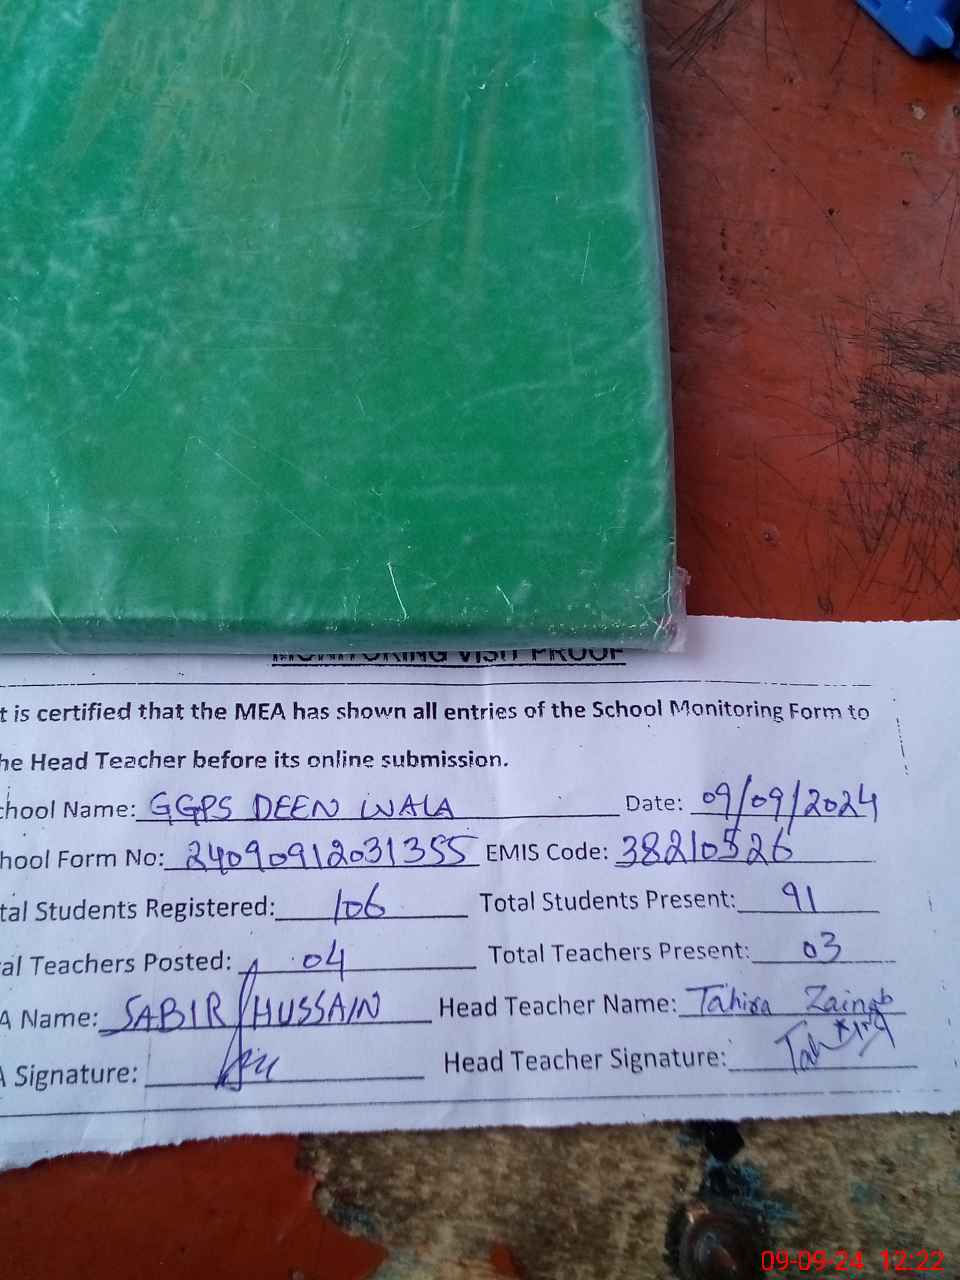 MONITORING VISIT PROOF
t is certified that the MEA has shown all entries of the School Monitoring Form to
he Head Teacher before its online submission.
chool Name: GGPS DEEN WALA Date: 09/09/2024
hool Form No: 24090912031355 EMIS Code: 38210526
tal Students Registered: 106 Total Students Present: 91
al Teachers Posted: 04 Total Teachers Present: 03
A Name: SABIR HUSSAIN Head Teacher Name: Tahira Zainab
A Signature: Head Teacher Signature:
09-09-24 12:22